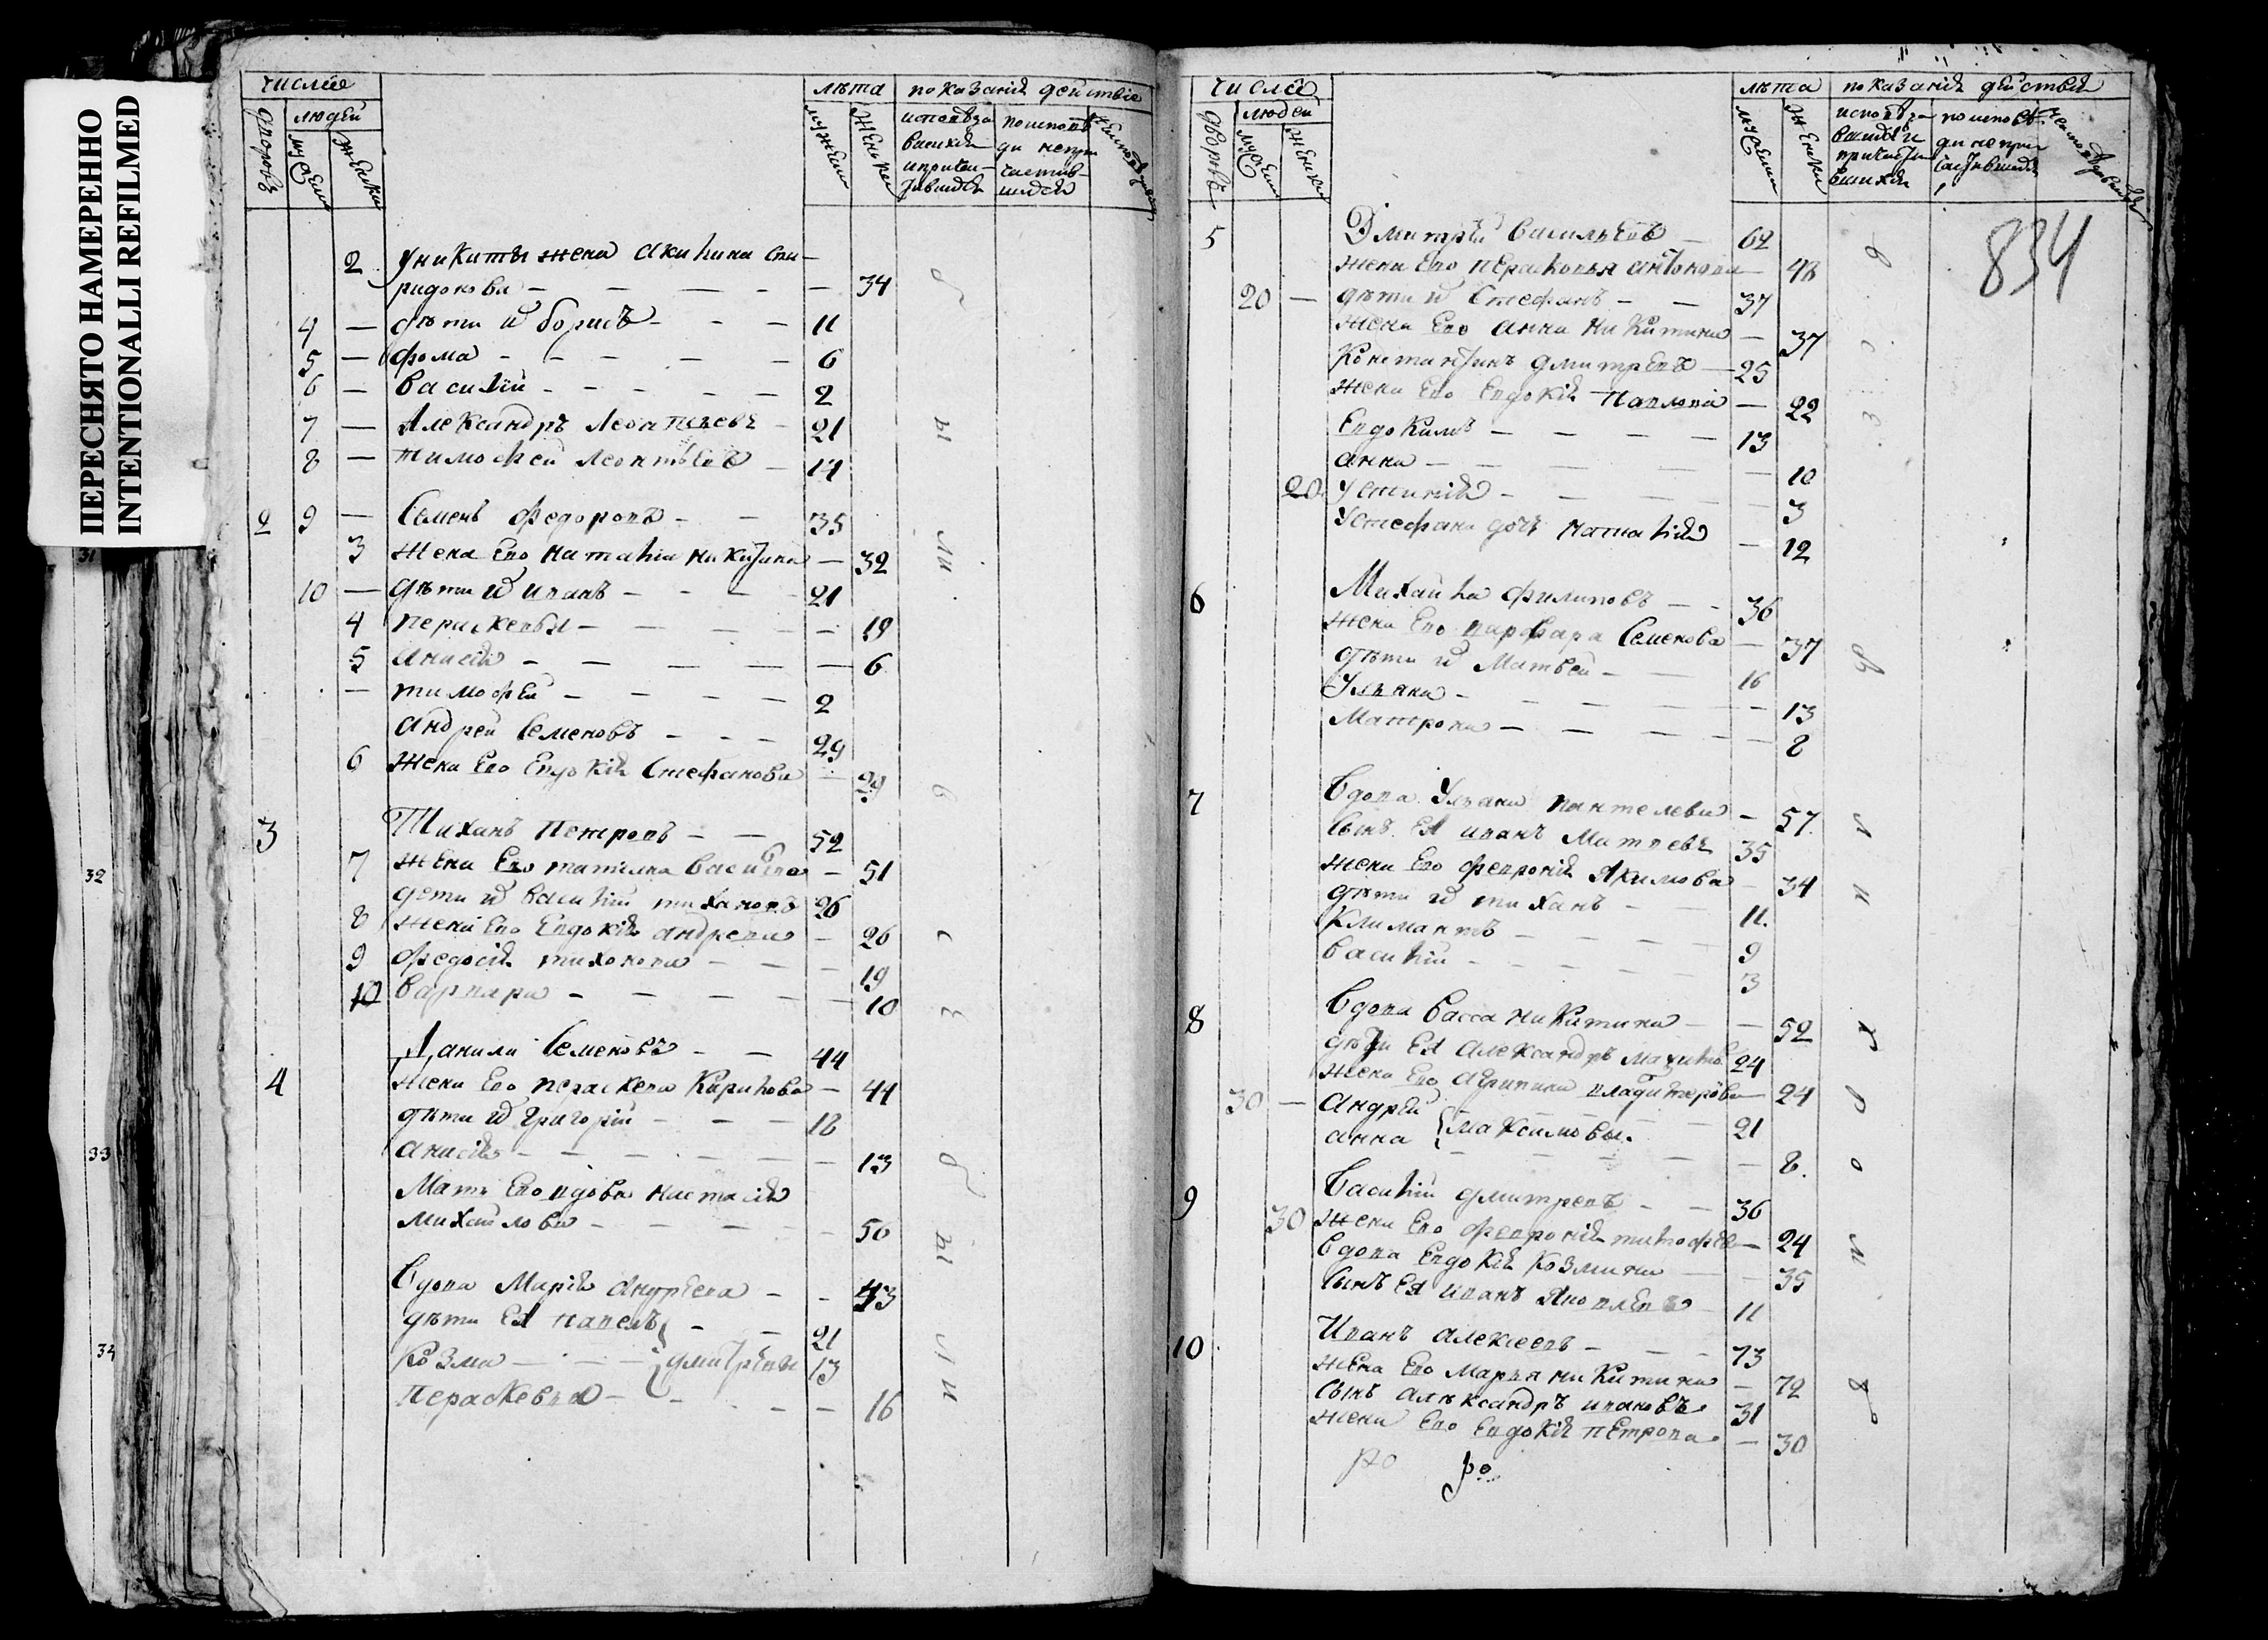 ПЕРЕСНЯТО НАМЕРЕННО
INTENTIONALLI REFILMED
31
32
33
34
число
дворовъ
людей
мужеск
женска
лѣта
мужеск
женска
показанiя действiе
исповѣдо
вашихся
и причас
тившихся
по исповѣ
ди непри
частив
шихся
2 у никиты жена акилина спи
ридонова — 34
4 — дѣти иⷯ борисъ — 11
5 — фома — 6
6 — василiй — 2
7 — Александръ Леонтьевъ — 21
8 — тимофей Леонтьевъ — 14
2 9 — Семенъ федоровъ — 35
3 жена Ево наталiа никитина — 32
10 — дѣти иⷯ иванъ — 21
4 перасковья — 19
5 анисiя — 6
— тимофей — 2
андрей Семеновъ — 29
6 жена Ево Евдокiя Стефанова — 29
3 Тиханъ Петровъ — 52
7 жена Ево татиана василева — 51
дети иⷯ василiй тихановъ 26
8 жена Ево Евдокiя андреева — 26
9 федосiя тихонова — 19
10 варвара — 10
4 Данила Семеновъ — 44
жена Ево пераскева Кирилова — 41
дѣти иⷯ григорiй — 18
анисiя — 13
Мать Ево вдова настасiя
михайлова — 56
Вдова Марiя андрѣева — 43
дѣти Ея павелъ — 21
Козма — дмитрѣевы 13
Пераскевiя — 16
б
ы
ли
в
с
е
б
ы
л
и
число
дворовъ
людей
мужеск
женска
лѣта
мужеска
женска
показанiя действiя
исповѣдо
вашихся и
причасти
вшихся
по исповѣ
ди непри
частившихся
834
5 Дмитрей васильевъ — 62
жена Ево перасковья антонова — 48
20 — дѣти иⷯ Стефанъ — 37
жена Ево анна никитина — 37
Константинъ дмитревъ — 25
жена Ево Евдокiя Павлова — 22
Евдокимъ — 13
анна — 10
20 Устинiя — 3
У Стефана дочь наталiя — 12
6 Михаила филиповъ — 36
жена Ево варвара Семенова — 37
дѣти иⷯ Матвей — 16
Ульяна — 13
Матрона — 8
7 Вдова Ульяна пантелева — 57
сынъ Ея иванъ Матвевъ 35
жена Ево февронiя Акимова — 34
дѣти иⷯ тиханъ — 11
Климантъ — 9
василiй — 3
8 Вдова васса никитина — 52
дѣти Ея александръ 24
жена Ево агрипина 24
30 — андрей
анна максимовы 21
8
9 Василiй дмитревъ — 36
30 жена Ево февронiя тимофѣе — 24
Вдова Евдокiя Козмина — 35
Сынъ Ея иванъ Яковлевъ — 11
10 Иванъ алексеевъ — 73
жена Ево Марья никитина — 72
Сынъ александръ ивановъ 31
жена Ево Евдокiя петрова — 30